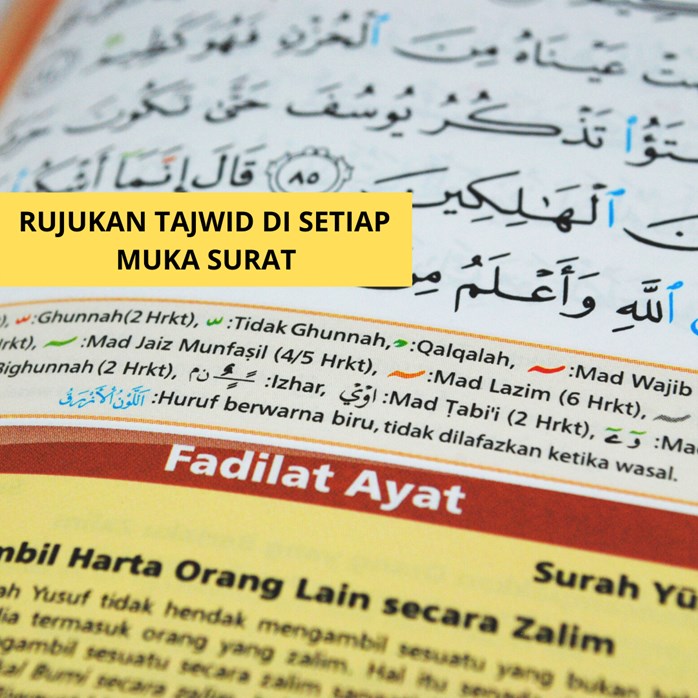 عَيْنَاهُ مِنَ ٱلْحُزْنِ فَهُوَ كَظِيمٌ
تَذْكُرُ يُوسُفَ حَتَّىٰ تَكُونَ
ٱلْهَـٰلِكِينَ ٨٥ قَالَ إِنَّمَا أَشْكُوا
ٱللَّهِ وَأَعْلَمُ مِنَ
RUJUKAN TAJWID DI SETIAP
MUKA SURAT
:Ghunnah(2 Hrkt), :Tidak Ghunnah, :Qalqalah, :Mad Wajib
:Mad Jaiz Munfaṣil (4/5 Hrkt), :Mad Lazim (6 Hrkt),
Bighunnah (2 Hrkt), :Izhar, :Mad Ṭabi'i (2 Hrkt),
:Huruf berwarna biru, tidak dilafazkan ketika wasal.
Fadilat Ayat
Surah Yū
mbil Harta Orang Lain secara Zalim
ah Yusuf tidak hendak mengambil sesuatu yang bukan
dia termasuk orang yang zalim. Hal itu
ngambil sesuatu secara zalim
Bumi secara